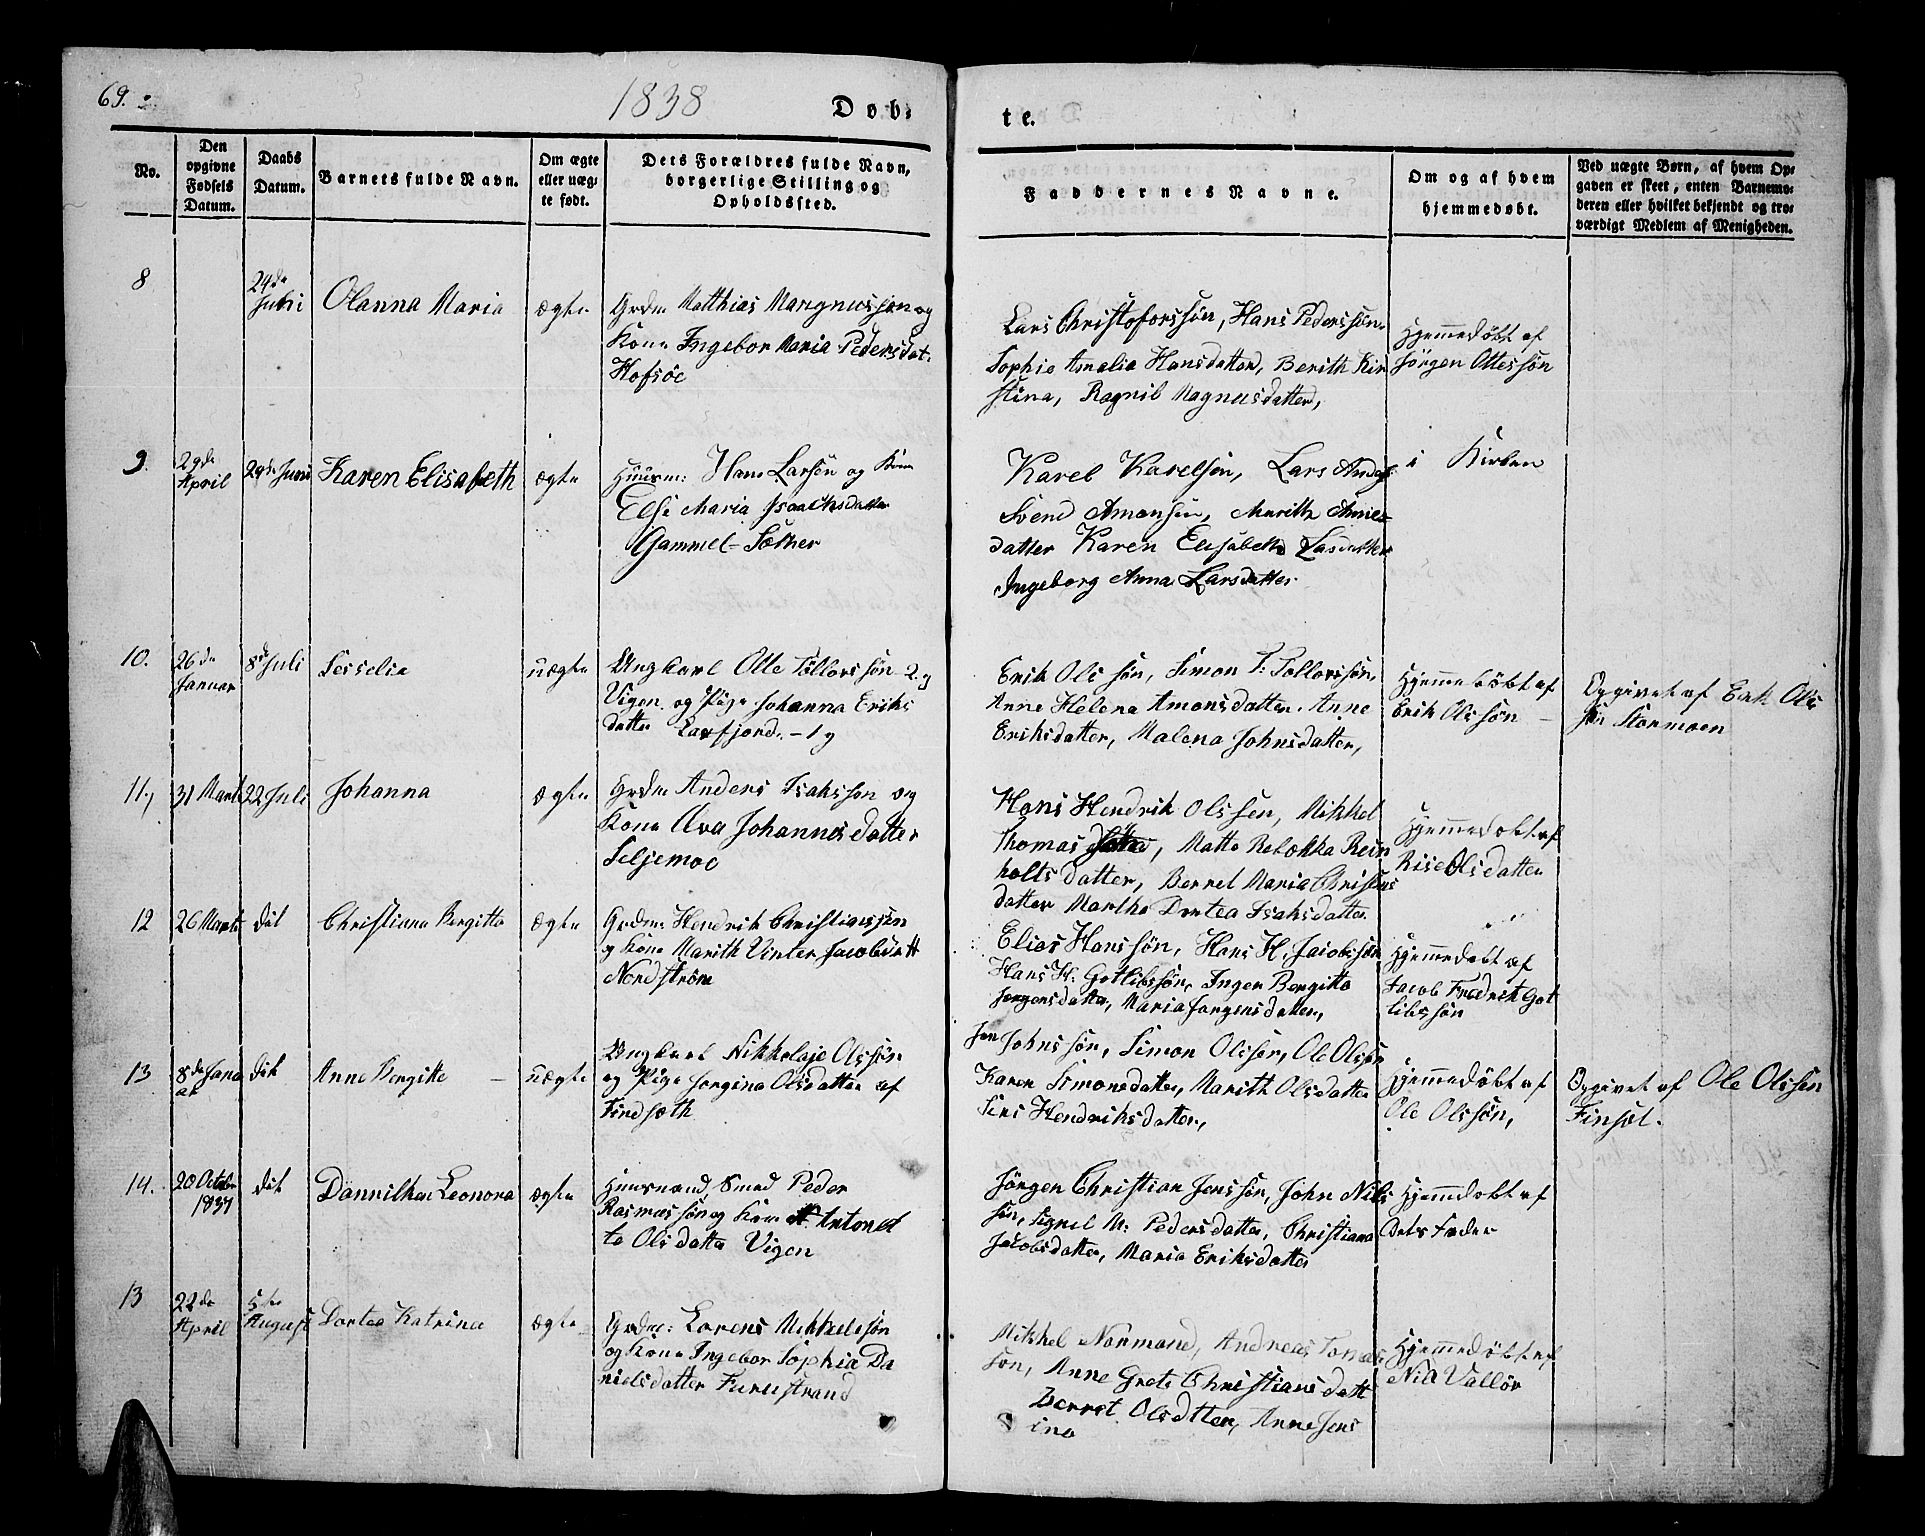 69.
1838
Døb-
te.
No.
Den
opgivne
Fødsels
Datum.
Daabs
Datum.
Barnets fulde Navn.
Om ægte
eller uæg-
te født.
Dets Forældres fulde Navn,
borgerlige Stilling og
Opholdssted.
Faddernes Navne.
Om og af hvem
hjemmedøbt.
Ved uægte Børn, af hvem Op-
gaven er skeet, enten Barnemo-
deren eller hvilket bekjendt og tro-
værdigt Medlem af Menigheden.
8
24de
Juni
Olanna Maria
ægte
Grdm Matthias Mangnussøn og
Kone Ingebor Maria Pedersdat.
Hofsöe
Lars Christoforssön, Hans Pederssön
Sophie Amalia Hansdatter, Berith Kir
stina, Ragnil Magnusdatter,
Hjemmedöbt af
Jörgen Ottessön
9.
29de
April
29de Juni
Karen Elisabeth
ægte
Huusm: Hans Larsön og Kone
Else Maria Isaachsdatter
Gammel-Sæther
Karel Karelsön, Lars
Svend Amonsen, Marith Anne
datter Karen Elisabeth Lasdatter
Ingeborg Anna Larsdatter
i Kirken
10.
26de
Januar
8de Juli
Sesselia
uægte
Ungkarl Olle Tollorssön 2.g
Vigen og Pige Johanna Eriks
datter Laxfjord. -1g
Erik Olssön, Simon P: Tollorssön,
Anne Helena Amonsdatter. Anne
Eriksdatter, Malena Johnsdatter,
Hjemmedöbt af
Erik Olssön -
Opgivet af Erik Ols
sön Stormoen
11,
31 Marts
22 Juli
Johanna
ægte
Grdm Anders Isakssøn og
Kone Eva Johannesdatter
Seljemoe
Hans Hendrik Olssen, Mikkel
Thomas , Matte Rebekka Rein
holtsdatter, Berret Maria Christens
datter Martha Dortea Isaksdatter
Hjemmedöbt af
Rise Olsdatter
12
26 Marts
dit
Christiana Bergitte
ægte
Grdm: Hendrik Christianssøn
og Kone Marith Vinter Jacobsdatt
Nordström
Elias Hanssön, Hans H. Jacobssön
Hans H: Gotlibssön, Inger Bergitte
Jörgensdatter, Maria Jørgensdatter,
Hjemmedöbt af
Jacob Fredrik Got
libssön
13
8de Janu
ar
dit
Anne Bergitte -
uægte
Ungkarl Nikkolaje Olssön
og Pige Jorgina Olsdatter af
Findsæth
Jon Johnssön, Simon Olssen, Ole Olssen
Karen Simonsdatter, Marith Olsdatter
Siri Hendriksdatter,
Hjemmedöbt af
Ole Olssön,
Opgivet af Ole Olssen
Finsæt.
14.
20 October
1837
dit
Dannilken Leonora
ægte
Huusmand Smed Peder
Rasmussön og Kone Antonet
te Olsdatter Vigen
Jörgen Christian Jenssön, John Nils
sön, Signel M: Pedersdatter, Christiana
Jacobsdatter, Maria Eriksdatter
Hjemmdöbt af
Dets Fader
13
22de
April
5te
August
Dortea Katrina
ægte
Grdm: Lorens Mikkelssön
og Kone Ingebor Sophia Da
nielsdatter Furustrand
Mikkel Normand, Andreas Tomas
son, Anne Grete Christiansdatt
Berret Olsdatter, Anne Jens
ina
Hjemmedöbt af
Nils Vallör